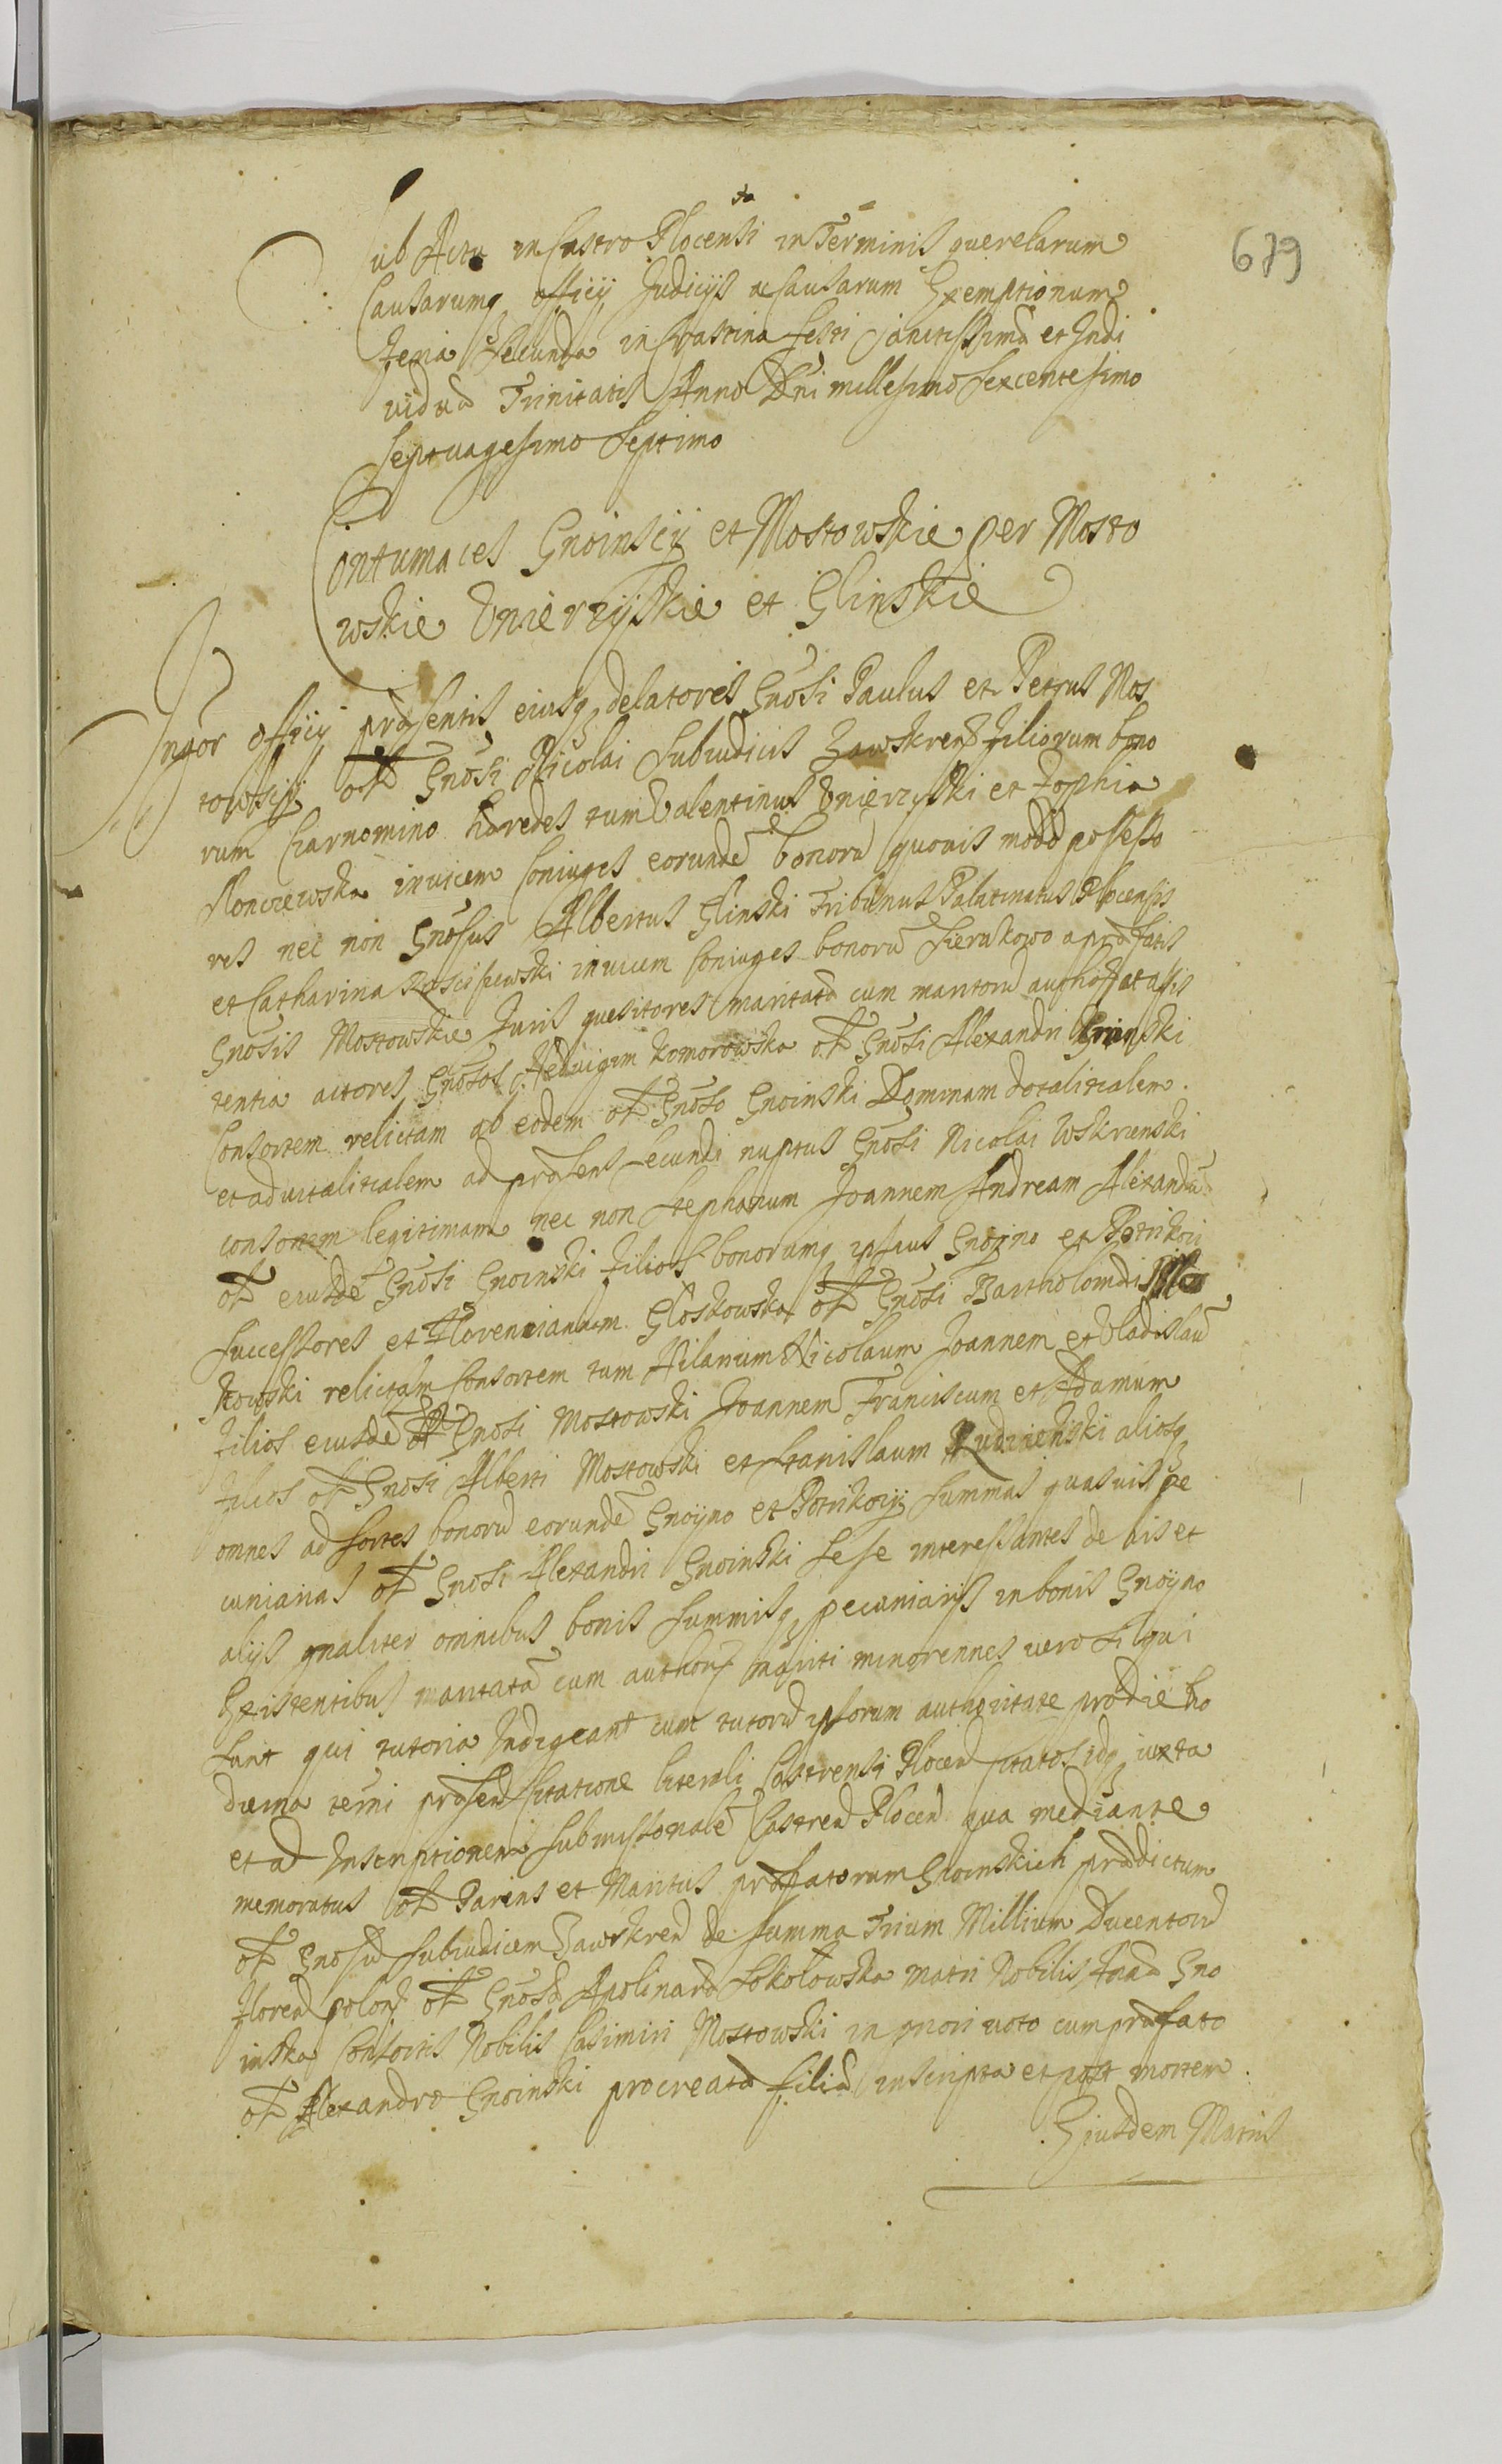 679
Sub Actu in Castro Plocensi in Terminis querelarum
Causarumq officij Judicijs ac Causarum Exemptionum
feria Secunda in Crastina festi sanctissimæ et Indi
viduæ Trinitatis Anno Dni millesimo sexcentesimo
septuagesimo septimo
Contumaces Gnoinscij et Mostowskie per Mosto
wskie Unierzÿskie et Glinskie
officij præsentis eiusq delatores Gnosi Paulus et Petrus Mos
towscij ol Gnosi Nicolai Subiudicis Zawskren filiorum bono
rum Czarnomino hæredes tum Valentinus Unierzyski et Zophia
invicem Coniuges eorunde bonoru quovis modo possesso
res nec non Gnosus Albertus Glinski Tribunus Palatinatus Plocensis
et Catharina Rosciszewski invicem Coniuges bonoru Sierakowo a præfatis
Gnosis Mostowskie Juris quesitores maritatæ cum maritoru
tentia actores Gnosos Hedvigem Komorowska ol Gnosi Alexandri Gnoinski
Consortem relictam ab eodem ol Gnoso Gnoinski Dominam dotalitialem
et advitalitialem ad præsens secundi nuptus Gnosi Nicolai Wskrzenski
consortem legitimam nec non Stephanum Joannem Andream Alexandru
ol eiusde Gnosi Gnoinski filios bonorumq ipsius Gnoyno et Petrikozi
successores et Florentianam Gloskowska ol Gnosi Bartholomæi
relictam Consortem tum Hilarium Nicolaum Joannem et Vladislau
filios eiusde ol Gnosi Mostowski Joannem Franciscum et Adamum
filios ol Gnosi Alberti Mostowski et Stanislaum Rudzienski aliosq
omnes ad sortes bonoru eorunde Gnoyno et Petrikozij summas quasvis pe
cuniarias ol Gnosi Alexandri Gnoinski sese interessantes de his et
alijs gnaliter omnibus bonis summisq pecuniarijs in bonis Gnoyno
Existentibus maritata cum author mariti minorennes vero si qui
sunt qui tutoria Indigeant cum tutoru ipsorum authoritate pro die ho
dierna termi præsen Citatione literali Castrensi Plocen citatos idq iuxta
et ad Inscriptionem submissionale Castren Plocen qua mediante
memoratus ol Parens et Maritus præfatorum Gnoinskich prædictum
ol Gnosu Subiudicem Zawskren de summa Trium Millium Ducentoru
floren polon ol Gnosæ Apolinaræ Sokołowska matri Nobilis Annæ Gno
inska Consortis Nobilis Casimiri Mostowski in priori voto cum præfato
ol Alexandro Gnoinski procreatæ filiæ inscripta et post mortem
Eiusdem Matris